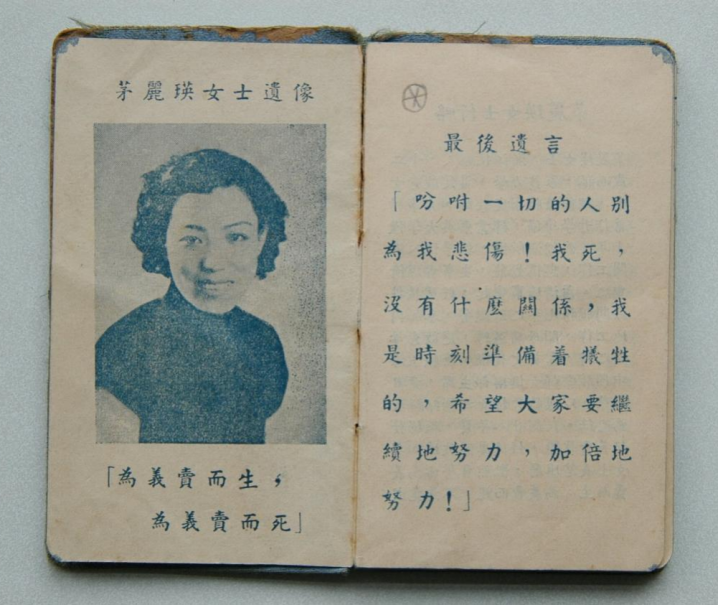 茅麗瑛女士遺像
「為義賣而生，
為義賣而死」
最後遺言
「吩咐一切的人別
為我悲傷！我死，
沒有什麼關係，我
是時刻準備着犠牲
的，希望大家要繼
續地努力，加倍地
努力！」